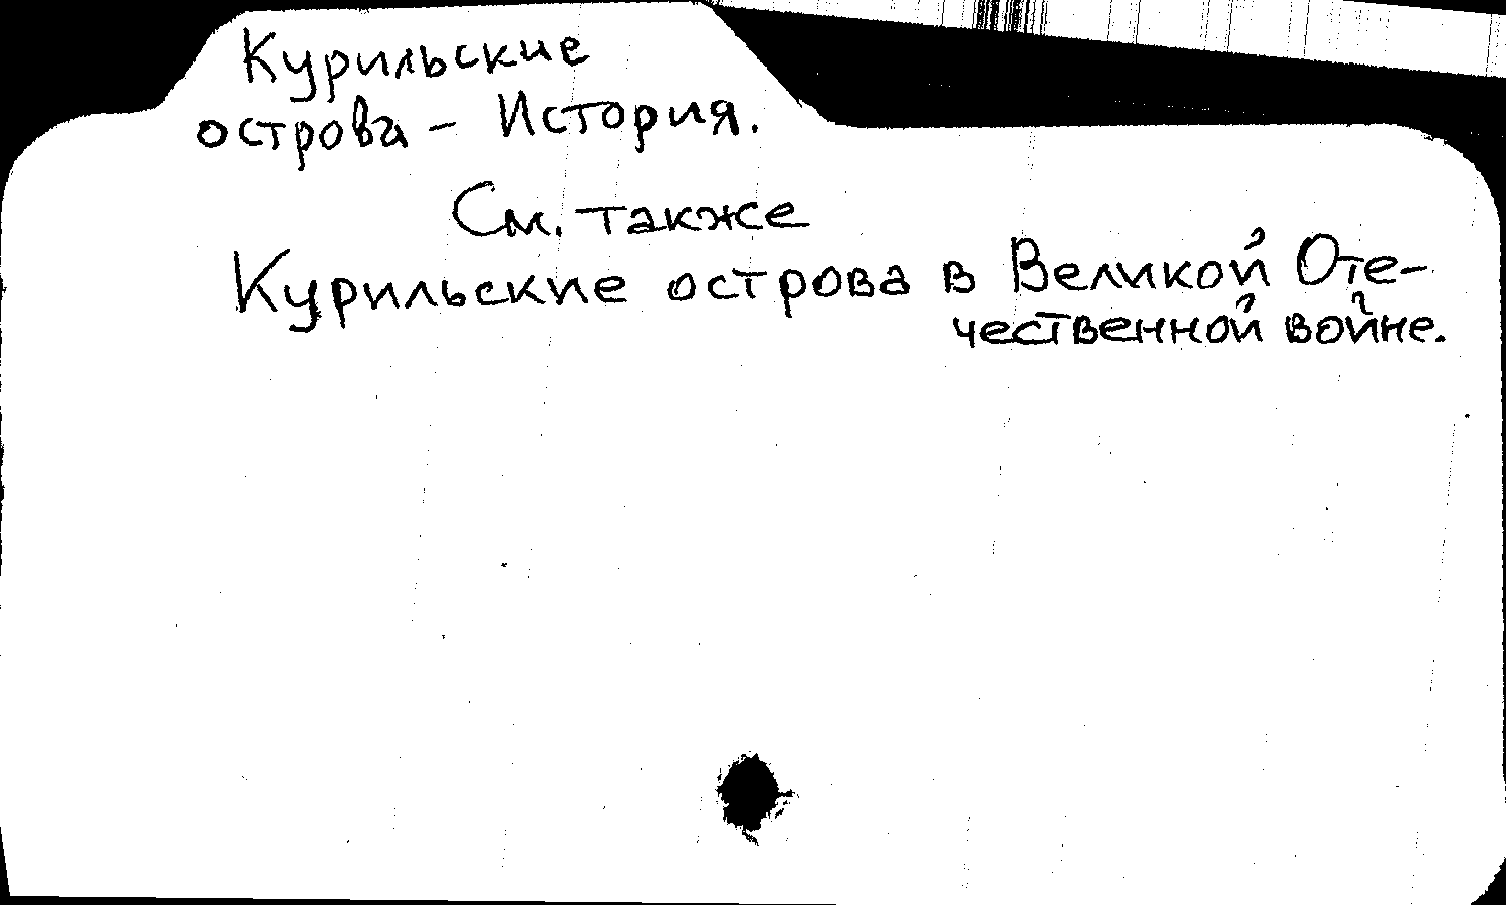 Курильские
острова - История.
См. также
Курильские острова в Великой Оте-
чественной войне.